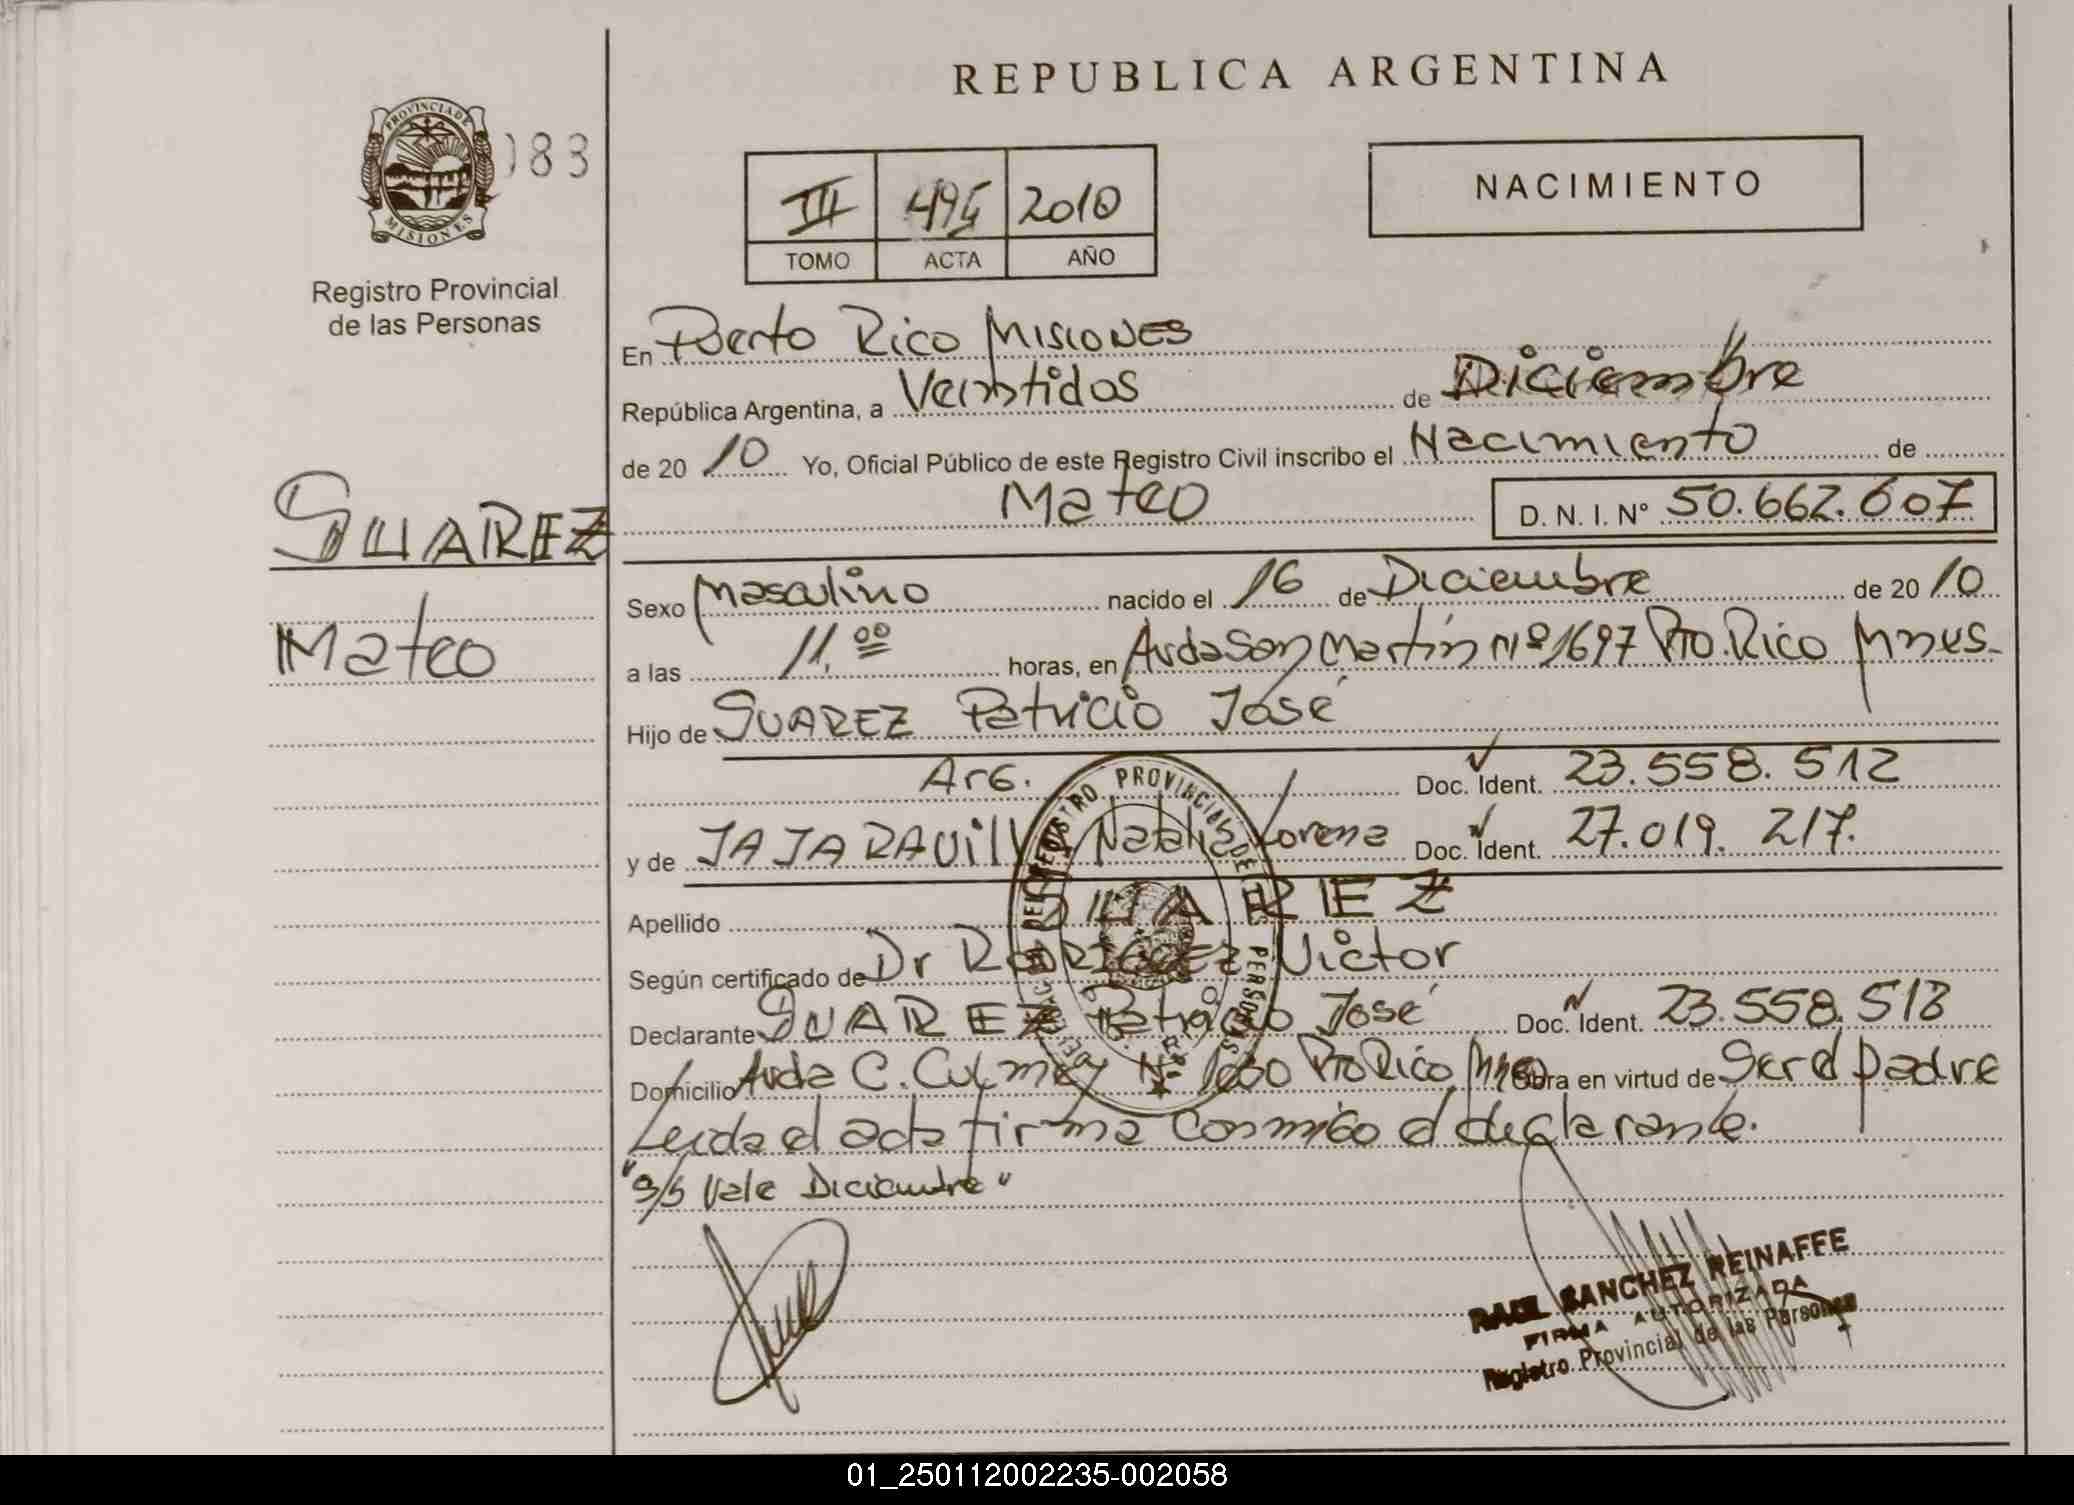 REPUBLICA ARGENTINA
PROVINCIA DE MISIONES
083
Registro Provincial
de las Personas
III 495 2010
TOMO ACTA AÑO
NACIMIENTO
SUAREZ
Mateo
En Puerto Rico Misiones
República Argentina, a Veintidos de Diciembre
de 20 10 Yo, Oficial Público de este Registro Civil inscribo el Nacimiento de
Mateo D. N. I. N° 50.662.607
Sexo Masculino nacido el 16 de Diciembre de 20 10
a las 11.00 horas, en Avda San Martín Nº 1697 Pto. Rico Mnes.
Hijo de SUAREZ Patricio José
Arg. Doc. Ident. 23.558.512
y de Natalia Lorena Doc. Ident. 27.019.217.
Apellido SUAREZ
Según certificado de Dr RODRIGUEZ Victor
Declarante SUAREZ Patricio José Doc. Ident. 23.558.513
Domicilio Avda C. Culmey Nº Pto Rico Mnes Obra en virtud de Ser el padre
Leida el acta firma conmigo el declarante.
"S/S Vale Diciembre"
REGISTRO PROVINCIAL DE LAS PERSONAS
RAUL SANCHEZ REINAFFE
FIRMA AUTORIZADA
Registro Provincial de las Personas
01_250112002235-002058